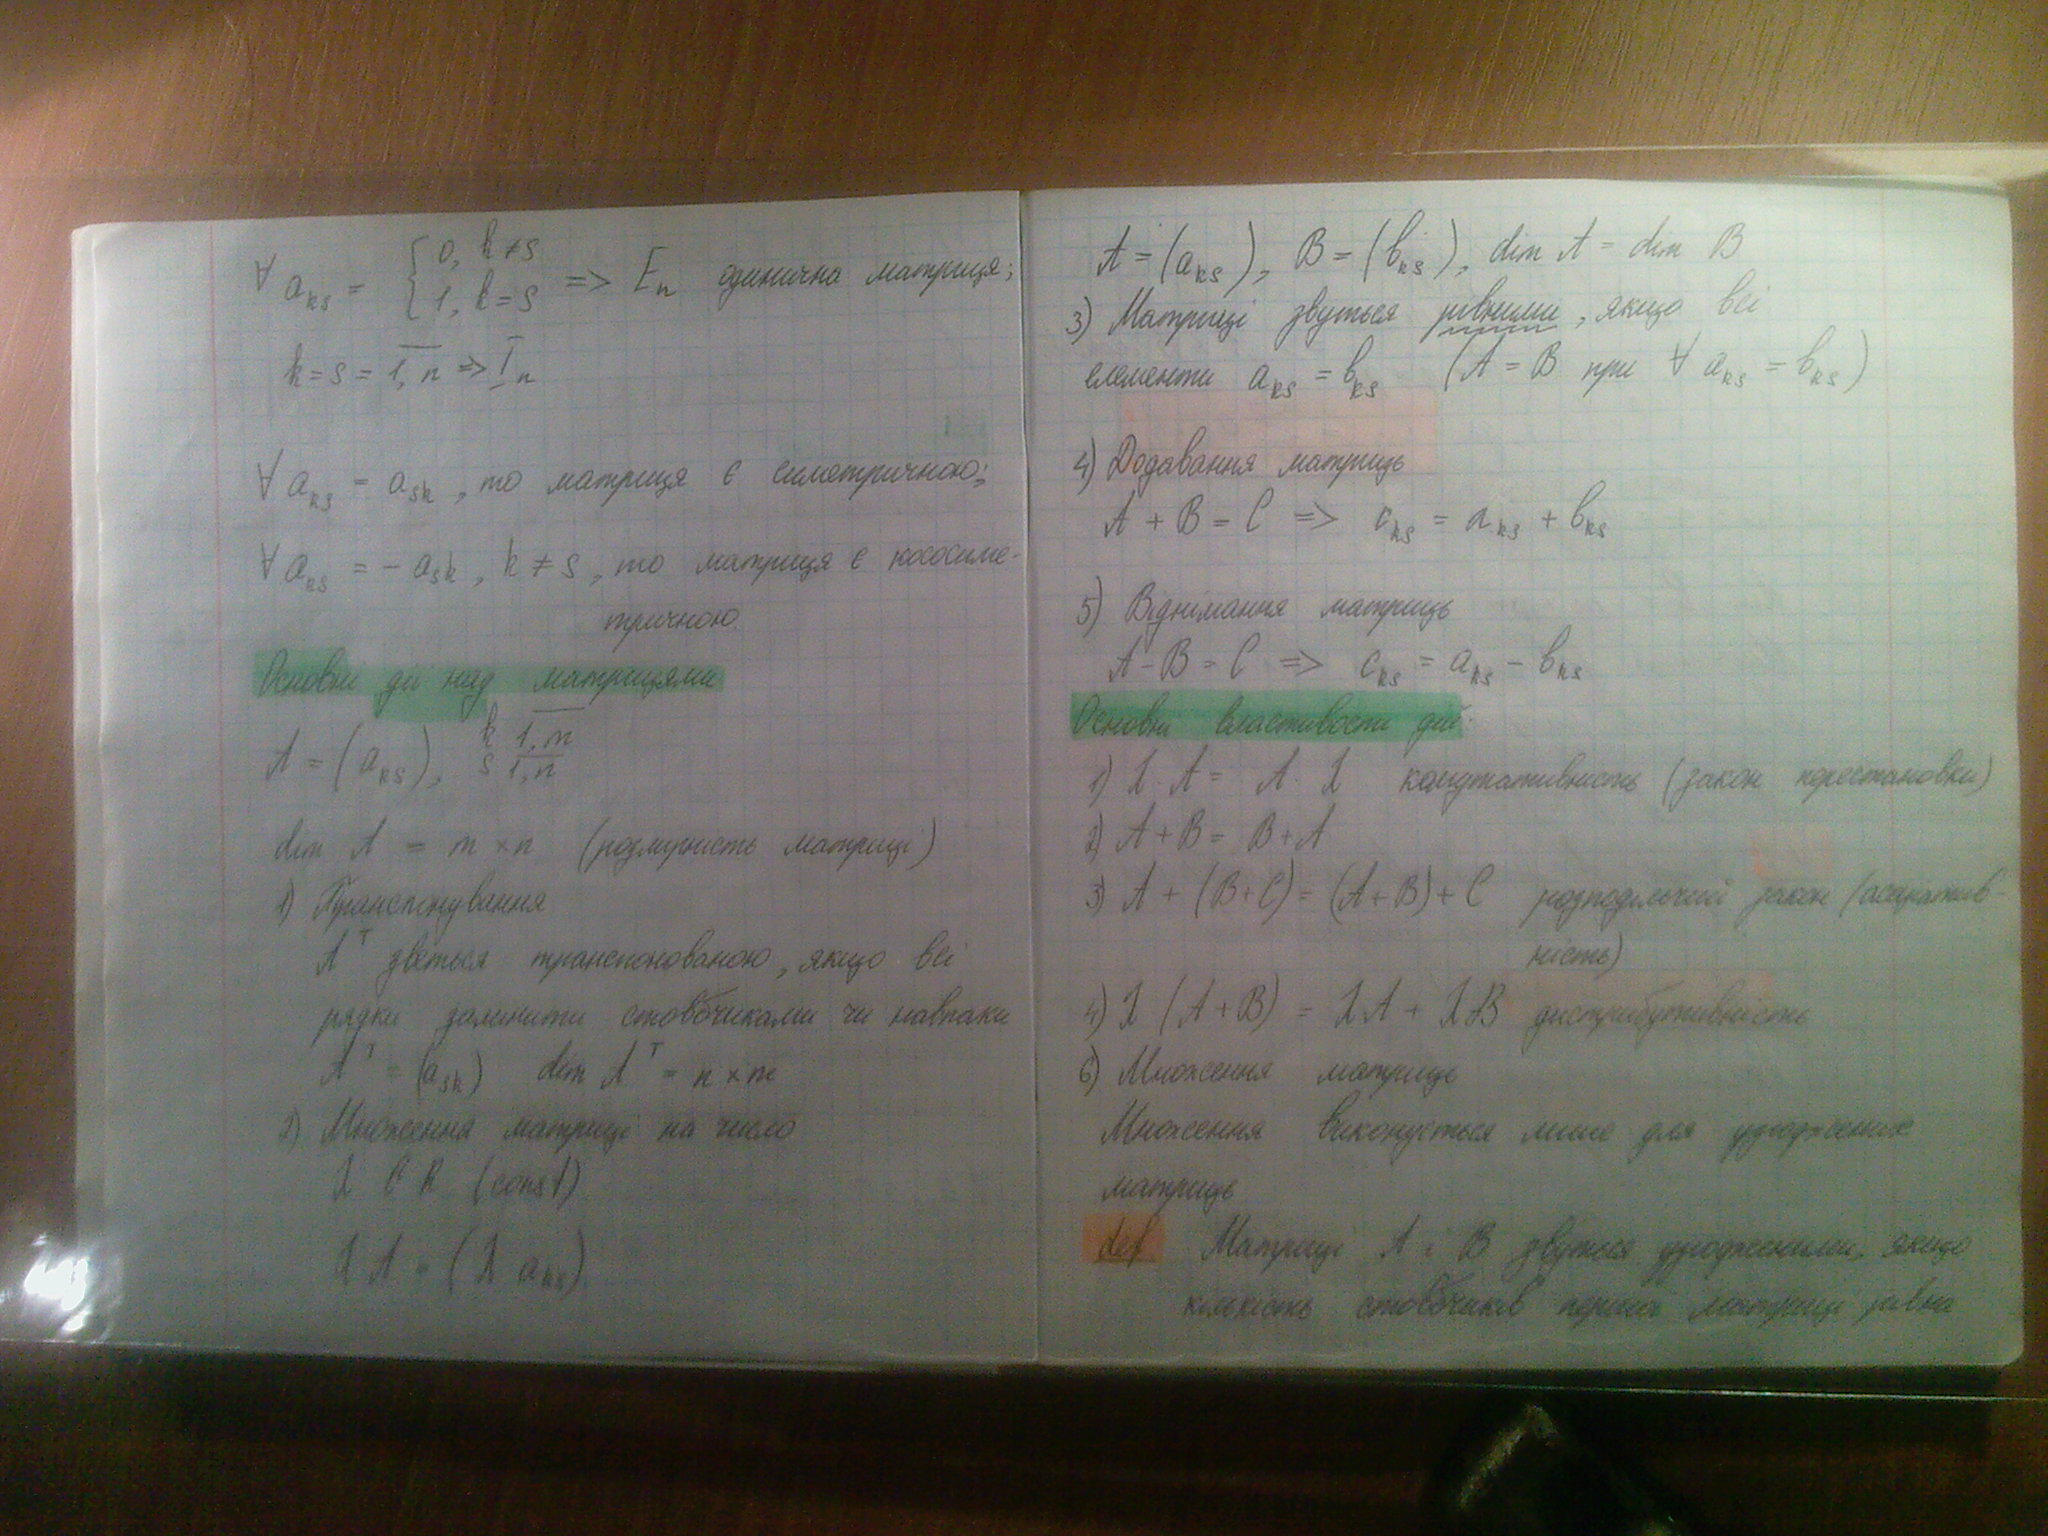 ∀ a_ks = { 0, k ≠ s
1, k = s => E_n одинична матриця;
k = s = 1, n => I_n
∀ a_ks = a_sk, то матриця є симетричною;
∀ a_ks = - a_sk, k ≠ s, то матриця є кососиме-
тричною.
Основні дії над матрицями
A = (a_ks), k 1, m
s 1, n
dim A = m × n (розмірність матриці)
1) Транспонування
A^T зветься транспонованою, якщо всі
рядки замінити стовбчиками чи навпаки
A^T = (a_sk) dim A^T = n × m
2) Множення матриці на число
λ ∈ R (const)
λ A = (λ a_ks)
A = (a_ks), B = (b_ks), dim A = dim B
3) Матриці звуться рівними, якщо всі
елементи a_ks = b_ks (A = B при ∀ a_ks = b_ks)
4) Додавання матриць
A + B = C => c_ks = a_ks + b_ks
5) Віднімання матриць
A - B = C => c_ks = a_ks - b_ks
Основні властивості дій:
1) λ · A = A · λ комутативність (закон перестановки)
2) A + B = B + A
3) A + (B + C) = (A + B) + C розподільчий закон (асоціатив-
ність)
4) λ (A + B) = λA + λB дистрибутивність
6) Множення матриць
Множення виконується лише для узгоджених
матриць
def Матриці A і B звуться узгодженими, якщо
кількість стовбчиків першої матриці рівна